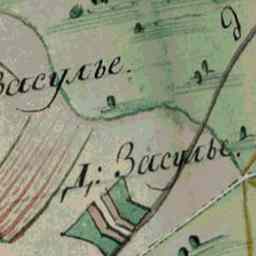 Засулье.
Д: Засулье.